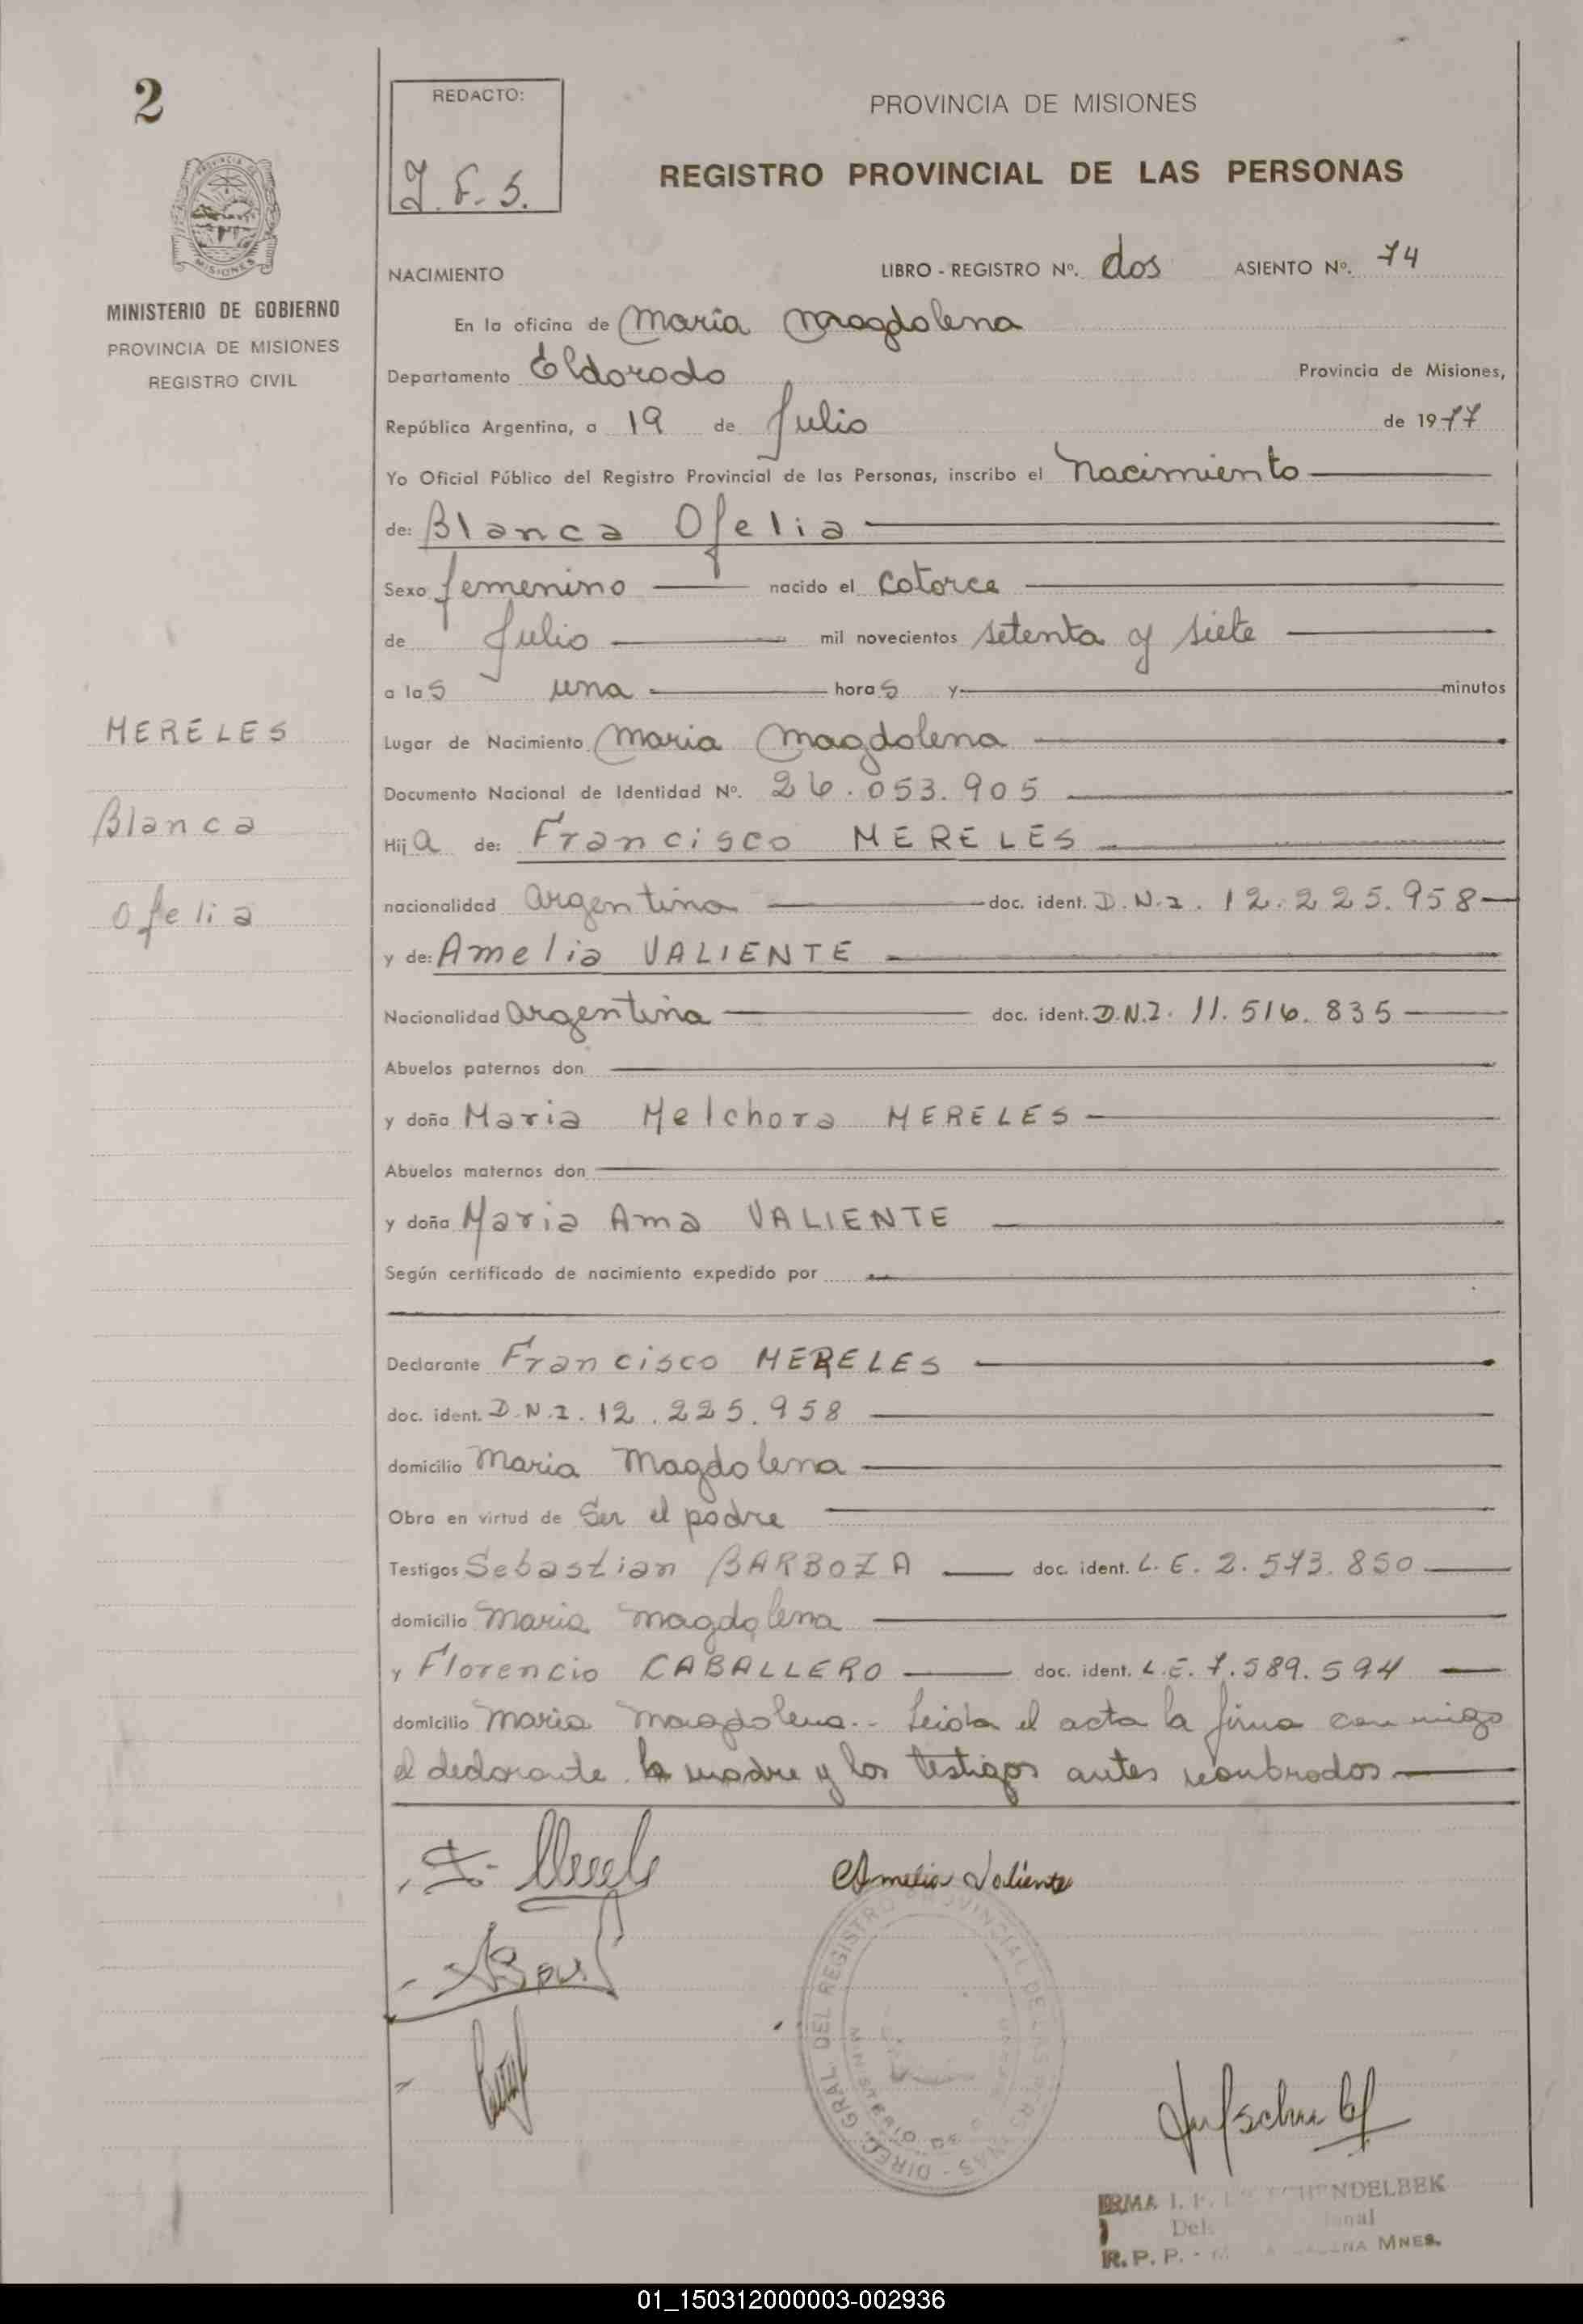 2
REDACTO:
J. F. S.
PROVINCIA DE MISIONES
REGISTRO PROVINCIAL DE LAS PERSONAS
MISIONES
MINISTERIO DE GOBIERNO
PROVINCIA DE MISIONES
REGISTRO CIVIL
NACIMIENTO LIBRO - REGISTRO Nº. dos ASIENTO Nº. 74
En la oficina de Maria Magdalena
Departamento Eldorado Provincia de Misiones,
República Argentina, a 19 de Julio de 1977
Yo Oficial Público del Registro Provincial de las Personas, inscribo el Nacimiento
de: Blanca Ofelia
Sexo femenino nacido el catorce
de Julio mil novecientos setenta y siete
a las una horas y minutos
MERELES
Blanca
Ofelia
Lugar de Nacimiento Maria Magdalena
Documento Nacional de Identidad Nº. 26.053.905
Hija de: Francisco MERELES
nacionalidad argentina doc. ident. D.N.I. 12.225.958
y de: Amelia VALIENTE
Nacionalidad argentina doc. ident. D.N.I. 11.516.835
Abuelos paternos don
y doña Maria Melchora MERELES
Abuelos maternos don
y doña Maria Ama VALIENTE
Según certificado de nacimiento expedido por
Declarante Francisco MERELES
doc. ident. D.N.I. 12.225.958
domicilio Maria Magdalena
Obra en virtud de Ser el padre
Testigos Sebastian BARBOZA doc. ident. L.E. 2.573.850
domicilio Maria Magdalena
y Florencio CABALLERO doc. ident. L.E. 7.589.594
domicilio Maria Magdalena.- Leida el acta la firma conmigo
el declarante la madre y los testigos antes nombrados
Amelia Valiente
DIREC. GRAL. DEL REGISTRO PROVINCIAL DE LAS PERSONAS
MINISTERIO DE
IRMA I. F.
R. P. P. - MNES.
01_150312000003-002936